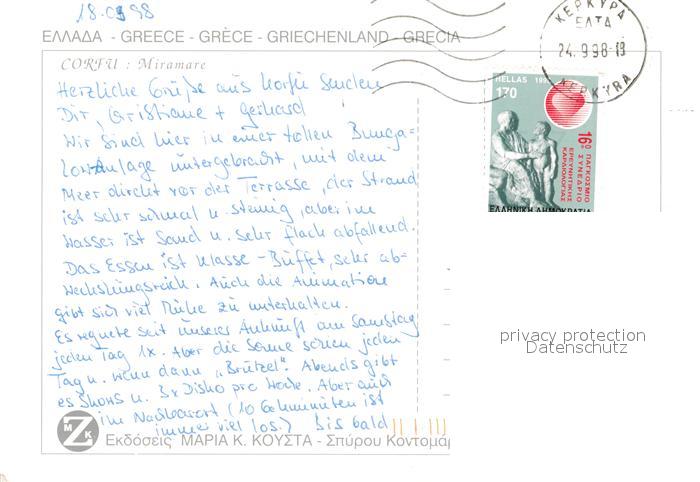 18.09.98
ΕΛΛΑΔΑ - GREECE - GRÈCE - GRIECHENLAND - GRECIA
CORFU : Miramare
Herzliche Grüße aus Korfu senden
Dir, Christiane + Gerhard
Wir sind hier in einer tollen Bunga-
lowanlage untergebracht, mit dem
Meer direkt vor der Terrasse, der Strand
ist sehr schmal u. steinig, aber im
Wasser ist Sand u. sehr flach abfallend.
Das Essen ist Klasse - Buffet, sehr ab-
wechslungsreich. Auch die Animation
gibt sich viel Mühe zu unterhalten.
Es regnete seit unserer Ankunft am Samstag
jeden Tag 1x. Aber die Sonne schien jeden
Tag u. wenn dann „Brutzel". Abends gibt
es Shows u. 3x Disko pro Woche. Aber auch
im Nachbarort (10 Gehminuten ist
immer viel los.) Bis bald
MZK
Εκδόσεις ΜΑΡΙΑ Κ. ΚΟΥΣΤΑ - Σπύρου Κοντομάρ
ΚΕΡΚΥΡΑ
ΕΛΤΑ
24.9.98-19
KERKYRA
HELLAS
170
16ο ΠΑΓΚΟΣΜΙΟ
ΣΥΝΕΔΡΙΟ
ΕΡΕΥΝΗΤΙΚΗΣ
ΚΑΡΔΙΟΛΟΓΙΑΣ
ΕΛΛΗΝΙΚΗ ΔΗΜΟΚΡΑΤΙΑ
privacy protection
Datenschutz